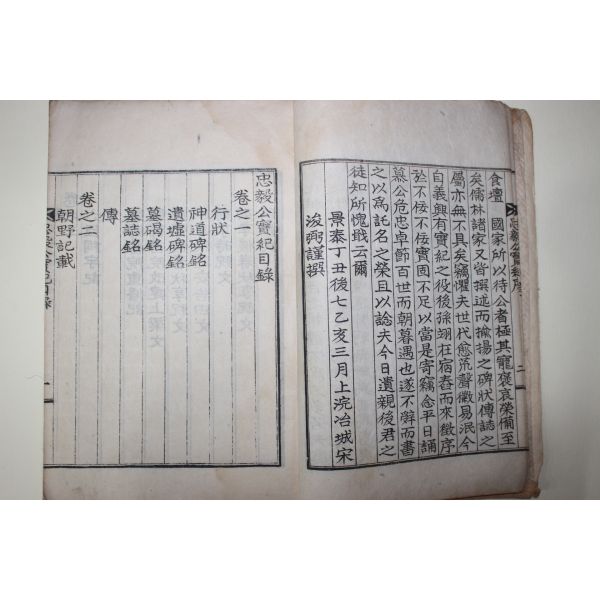 忠毅公實紀序
二
食壇　國家所以待公者極其寵褒哀榮備至
矣儒林諸家又皆撰述而揄揚之碑狀傳誌之
屬亦無不具矣竊懼夫世代愈荒聲徽易泯今
自義興有實紀之役後孫翊在宿舂而來徵序
於不佞不佞實固不足以當是寄竊念平日誦
慕公危忠卓節百世而朝暮遇也遂不辭而書
之以爲託名之榮且以諗夫今日遺親後君之
徒知所愧戢云爾
景泰丁丑後七乙亥三月上浣冶城宋
浚弼謹撰
忠毅公實紀目錄
卷之一
行狀
神道碑銘
遺墟碑銘
墓碣銘
墓誌銘
傳
卷之二
朝野記載
忠毅公實紀目錄
一